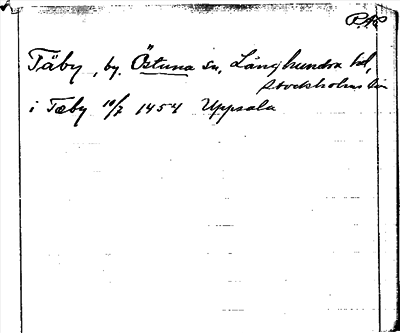 Täby, by. Östuna sn, Långhundra hd,
Stockholms län
i Tæby 10/7 1454 Uppsala